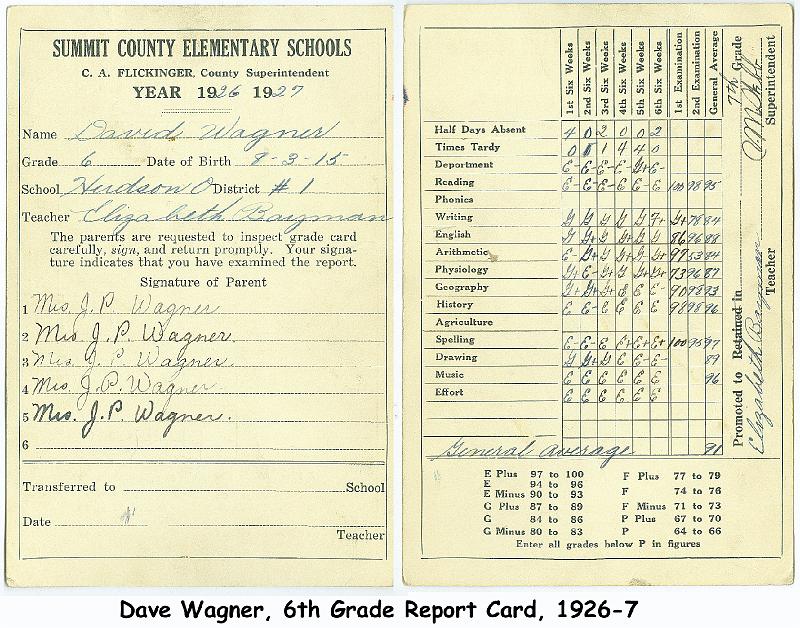 SUMMIT COUNTY ELEMENTARY SCHOOLS
C. A. FLICKINGER, County Superintendent
YEAR 1926 1927
Name David Wagner
Grade 6 Date of Birth 8-3-15
School Hudson O District #1
Teacher Elizabeth Bayman
The parents are requested to inspect grade card
carefully, sign, and return promptly. Your signa-
ture indicates that you have examined the report.
Signature of Parent
1 Mrs. J. P. Wagner
2 Mrs. J. P. Wagner.
3 Mrs. J. P. Wagner.
4 Mrs. J. P. Wagner
5 Mrs. J. P. Wagner.
6
Transferred to School
Date
Teacher
1st Six Weeks
2nd Six Weeks
3rd Six Weeks
4th Six Weeks
5th Six Weeks
6th Six Weeks
1st Examination
2nd Examination
General Average
Half Days Absent 4 0 2 0 0 2
Times Tardy 0 1 4 4 0
Department E- E- E- E- G+ E-
Reading E- E- E E E- E 100 98 95
Phonics
Writing G G G G G F+ G+ 78 84
English G G+ G G+ G G 86 96 88
Arithmetic E- G G+ G+ G G+ 97 53 84
Physiology G+ E- G+ G G+ G+ 73 96 87
Geography G+ G+ G+ E E E- 90 98 93
History E E- E E E E 98 98 96
Agriculture
Spelling E- E- E E+ E+ E+ 100 95 97
Drawing G G+ G E E- E- 89
Music E E E E E E 96
Effort E E E E E E
General Average 91
Promoted to Retained in 7th Grade
Elizabeth Bayman Teacher
Superintendent
E Plus 97 to 100 F Plus 77 to 79
E 94 to 96 F 74 to 76
E Minus 90 to 93 F Minus 71 to 73
G Plus 87 to 89 P Plus 67 to 70
G 84 to 86 P 64 to 66
G Minus 80 to 83
Enter all grades below P in figures
Dave Wagner, 6th Grade Report Card, 1926-7